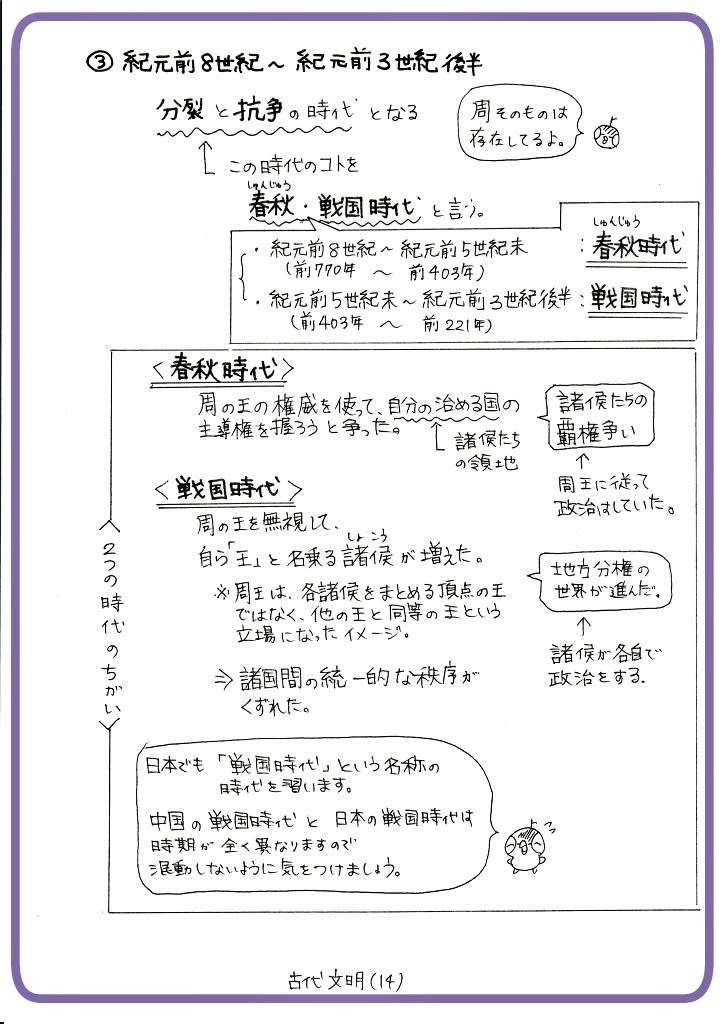 ③ 紀元前8世紀～紀元前3世紀後半
分裂と抗争の時代となる
周そのものは
存在してるよ。
この時代のコトを
しゅんじゅう
春秋・戦国時代と言う。
・紀元前8世紀～紀元前5世紀末
(前770年 ～ 前403年)
しゅんじゅう
：春秋時代
・紀元前5世紀末～紀元前3世紀後半：戦国時代
(前403年 ～ 前221年)
2つの時代のちがい
〈春秋時代〉
周の王の権威を使って、自分の治める国の
主導権を握ろうと争った。
諸侯たち
の領地
諸侯たちの
覇権争い
周王に従って
政治はしていた。
〈戦国時代〉
周の王を無視して、
しょこう
自ら「王」と名乗る諸侯が増えた。
※周王は、各諸侯をまとめる頂点の王
ではなく、他の王と同等の王という
立場になったイメージ。
⇒ 諸国間の統一的な秩序が
くずれた。
地方分権の
世界が進んだ。
諸侯が各自で
政治をする.
日本でも「戦国時代」という名称の
時代を習います。
中国の戦国時代と日本の戦国時代は
時期が全く異なりますので
混動しないように気をつけましょう。
古代文明(14)